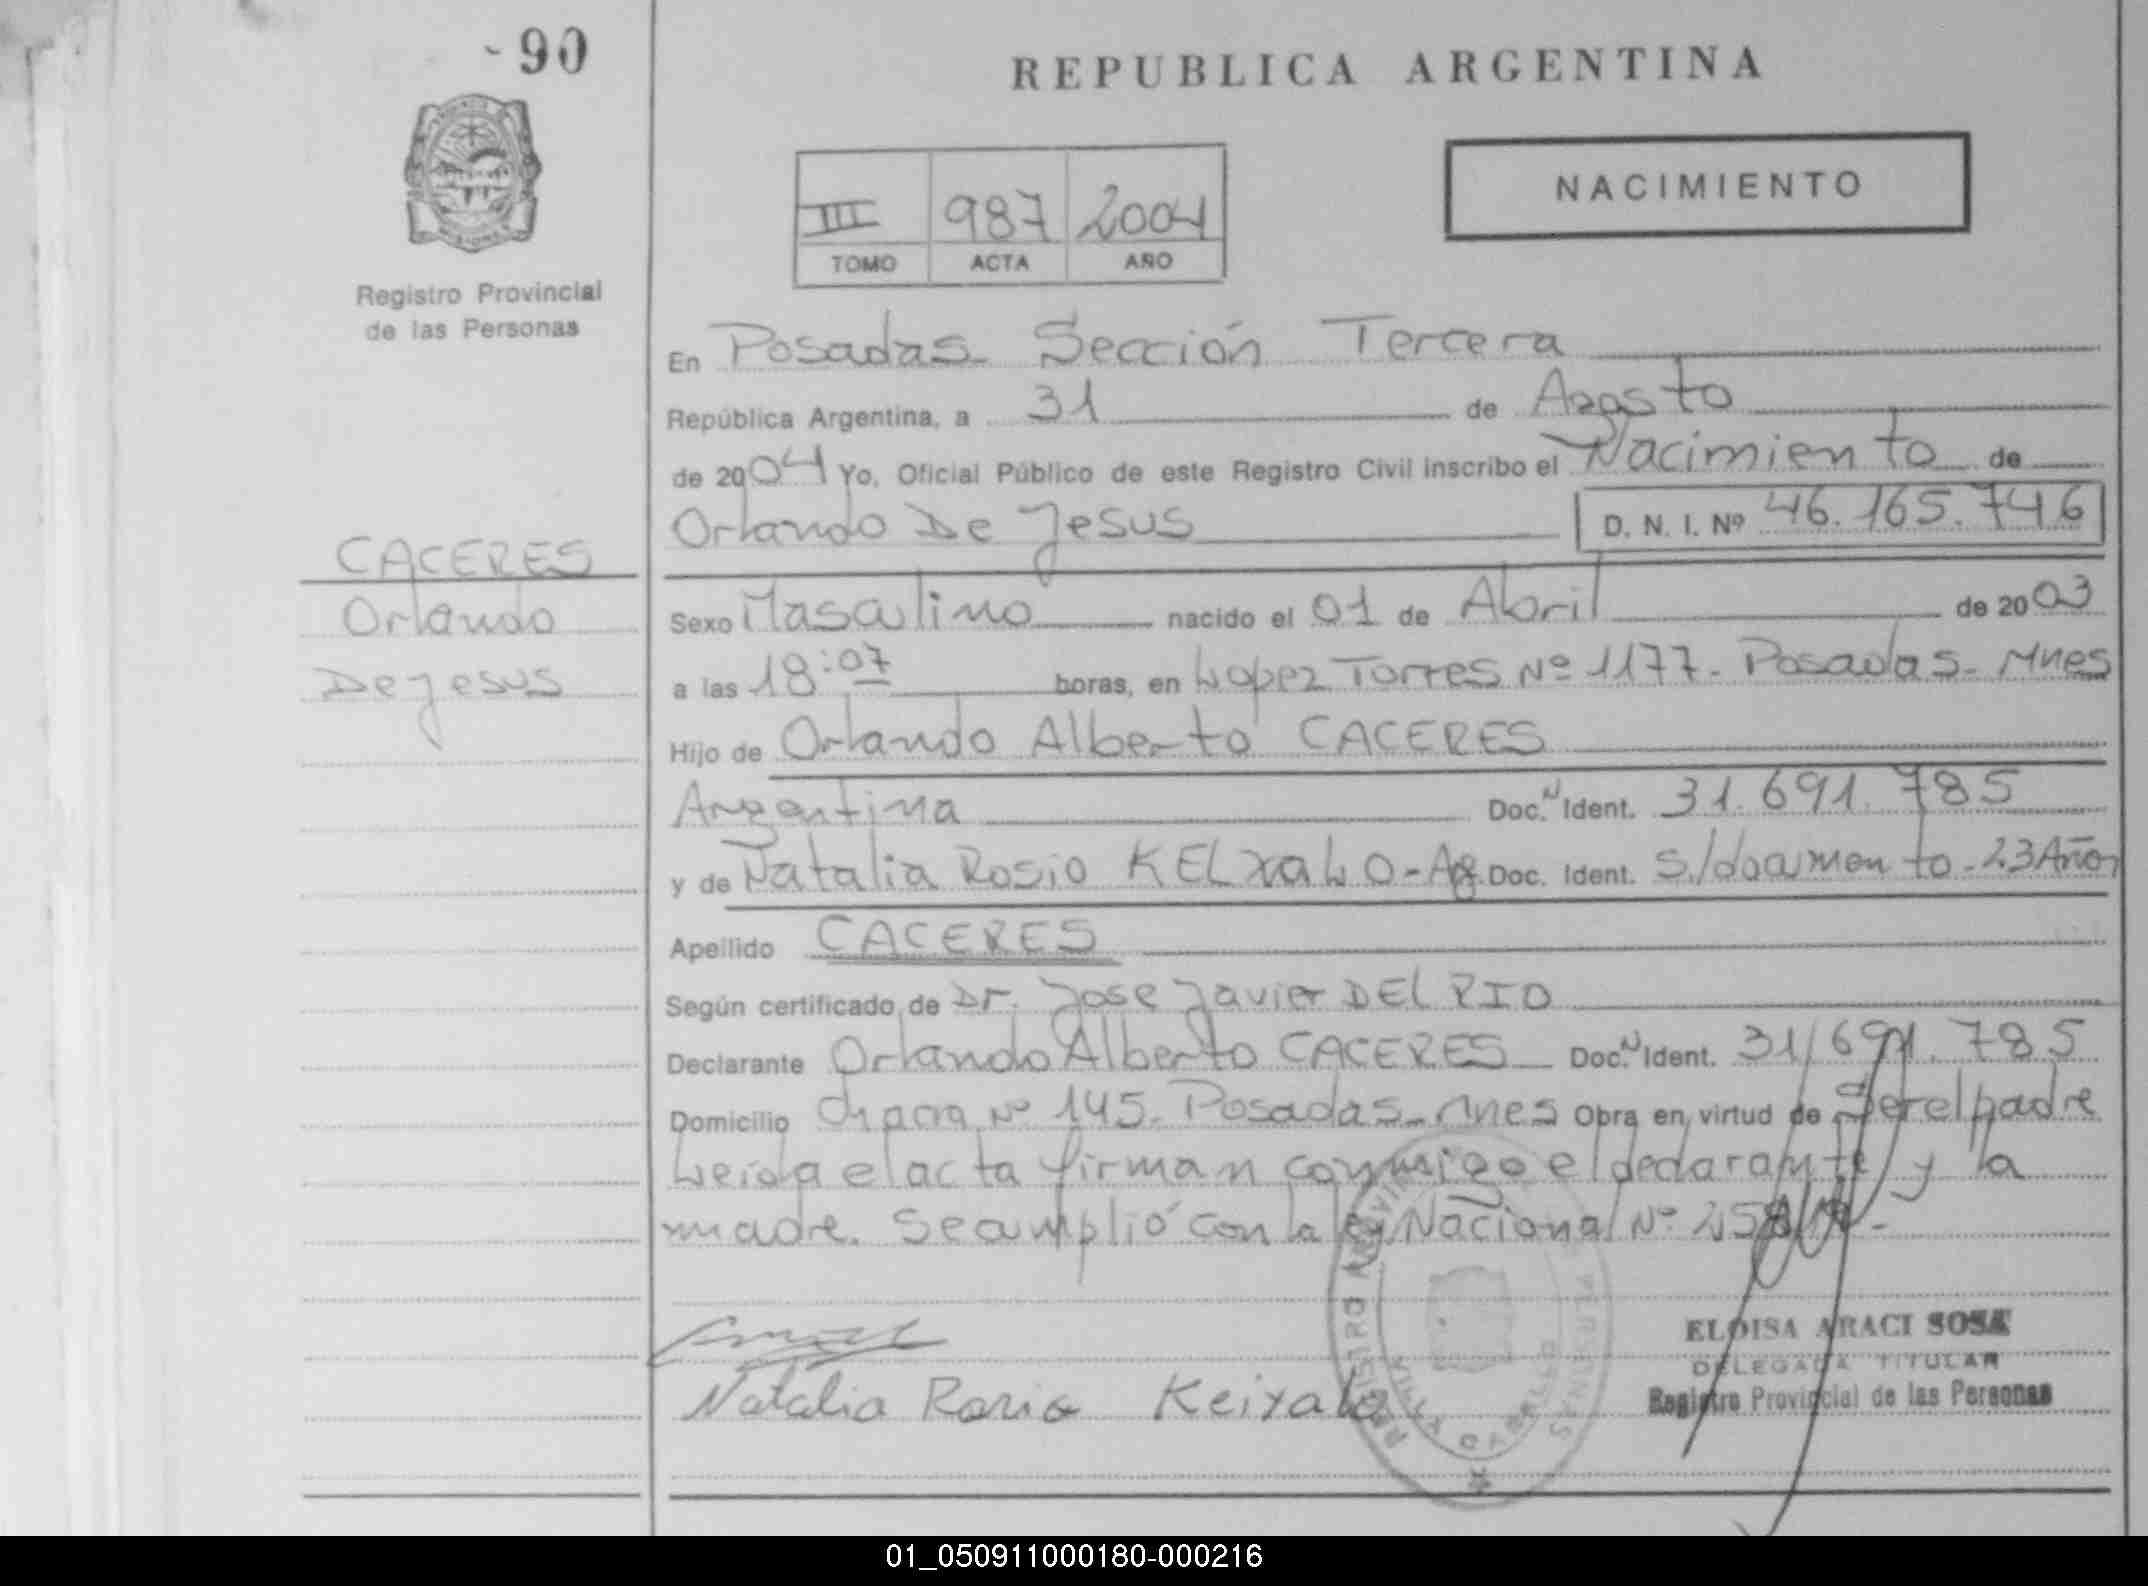 - 90
REPUBLICA ARGENTINA
NACIMIENTO
III 987 2004
TOMO ACTA AÑO
Registro Provincial
de las Personas
En Posadas - Sección Tercera
República Argentina, a 31 de Agosto
de 2004 Yo, Oficial Público de este Registro Civil inscribo el Nacimiento de
Orlando De Jesus D. N. I. Nº 46.165.746
CACERES
Orlando
De Jesus
Sexo Masculino nacido el 01 de Abril de 2003
a las 18:07 horas, en Lopez Torres Nº 1177 - Posadas - Mnes
Hijo de Orlando Alberto CACERES
Argentina Doc. N Ident. 31.691.785
y de Natalia Rosio - Doc. Ident. S/documento - 23 Años
Apellido CACERES
Según certificado de Dr. Jose Javier DEL RIO
Declarante Orlando Alberto CACERES Doc. N Ident. 31.691.785
Domicilio Chacra Nº 145 - Posadas - Mnes Obra en virtud de Ser el padre
Leida el acta firman conmigo el declarante y la
madre. Se cumplió con la ley Nacional Nº
Natalia Rosio
ELOISA ARACI SOSA
DELEGADA TITULAR
Registro Provincial de las Personas
01_050911000180-000216